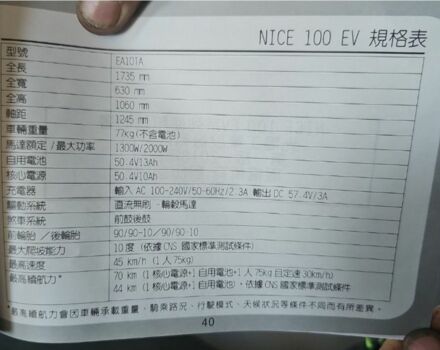 NICE 100 EV 規格表
型號 EA10TA
全長 1735 mm
全寬 630 mm
全高 1060 mm
軸距 1245 mm
車輛重量 77kg(不含電池)
馬達額定/最大功率 1300W/2000W
自用電池 50.4V13Ah
核心電源 50.4V10Ah
充電器 輸入 AC 100-240V/50-60Hz/2.3A 輸出 DC 57.4V/3A
驅動系統 直流無刷-輪轂馬達
煞車系統 前鼓後鼓
前輪胎/後輪胎 90/90-10/90/90-10
最大爬坡能力 10度(依據CNS 國家標準測試條件)
最高速度 45 km/h (1人75kg)
最高續航力* 70 km (1核心電源+1自用電池+1人75kg自定速30km/h)
44 km (1核心電源+1自用電池), 依據CNS 國家標準測試條件
*最高續航力會因車輛承載重量、騎乘路況、行駛模式、天候狀況等條件不同而有所差異。
40